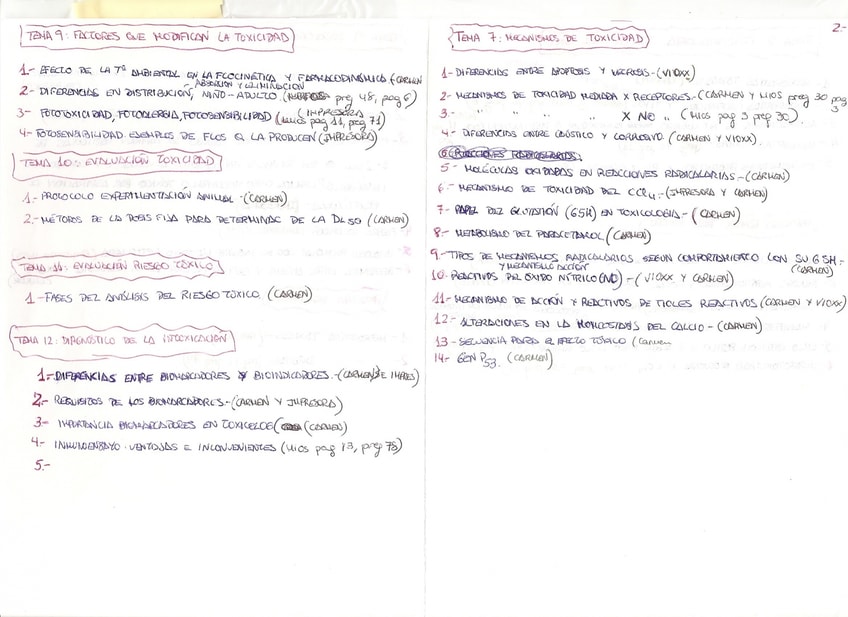 TEMA 9: FACTORES QUE MODIFICAN LA TOXICIDAD
1.- EFECTO DE LA Tª AMBIENTAL EN LA FCOCINÉTICA Y FARMACODINÁMICA (CARMEN
ABSORCIÓN Y ELIMINACIÓN
2- DIFERENCIAS EN DISTRIBUCIÓN, NIÑO-ADULTO. ( preg 48, pag 6)
(IMPRESORA
3- FOTOTOXICIDAD, FOTOALERGIA, FOTOSENSIBILIDAD (MIOS pag 11, preg 71)
4- FOTOSENSIBILIDAD EJEMPLOS DE FCOS Q LA PRODUCEN (IMPRESORA)
TEMA 10: EVALUACIÓN TOXICIDAD
1.- PROTOCOLO EXPERIMENTACIÓN ANIMAL.- (CARMEN)
2.- MÉTODOS DE LA DOSIS FIJA PARA DETERMINAC DE LA DL50 (CARMEN)
TEMA 11: EVALUACIÓN RIESGO TÓXICO
1.- FASES DEL ANÁLISIS DEL RIESGO TOXICO. (CARMEN)
TEMA 12: DIAGNÓSTICO DE LA INTOXICACIÓN
1.- DIFERENCIAS ENTRE BIOMARCADORES Y BIOINDICADORES.-(CARMEN E IMPRES)
2.- REQUISITOS DE LOS BIOMARCADORES.-(CARMEN Y IMPRESORA)
3.- IMPORTANCIA BIOMARCADORES EN TOXICOLOG (CARMEN)
4.- INMUNOENSAYO: VENTAJAS E INCONVENIENTES (MIOS pag 13, preg 78)
5.-
2.-
TEMA 7: MECANISMOS DE TOXICIDAD
1- DIFERENCIAS ENTRE APOPTOSIS Y NECROSIS-(VIOXX)
2- MECANISMOS DE TOXICIDAD MEDIADA X RECEPTORES.-(CARMEN Y MIOS preg 30 pag 3
3.- " " " " X NO " (MIOS pag 3 preg 30).
4- DIFERENCIAS ENTRE CÁUSTICO Y CORROSIVO (CARMEN Y VIOXX)
REACCIONES RADICALARIAS.
5- MOLÉCULAS OXIDADAS EN REACCIONES RADICALARIAS-(CARMEN)
6- MECANISMO DE TOXICIDAD DEL CCl4.-(IMPRESORA Y CARMEN)
7- PAPEL DEL GLUTATIÓN (GSH) EN TOXICOLOGIA-(CARMEN)
8- METABOLISMO DEL PARACETAMOL (CARMEN)
9-TIPOS DE MECANISMOS RADICALARIOS SEGUN COMPORTAMIENTO CON SU GSH.-
(CARMEN)
Y MECANISMO ACCIÓN
10- REACTIVOS DEL OXIDO NÍTRICO (NO)-(VIOXX Y CARMEN)
11- MECANISMO DE ACCIÓN Y REACTIVOS DE TIOLES REACTIVOS (CARMEN Y VIOXX)
12- ALTERACIONES EN LA HOMEOSTASIS DEL CALCIO-(CARMEN)
13- SECUENCIA PARA EL EFECTO TÓXICO (Carmen
14- GEN P53. (CARMEN)